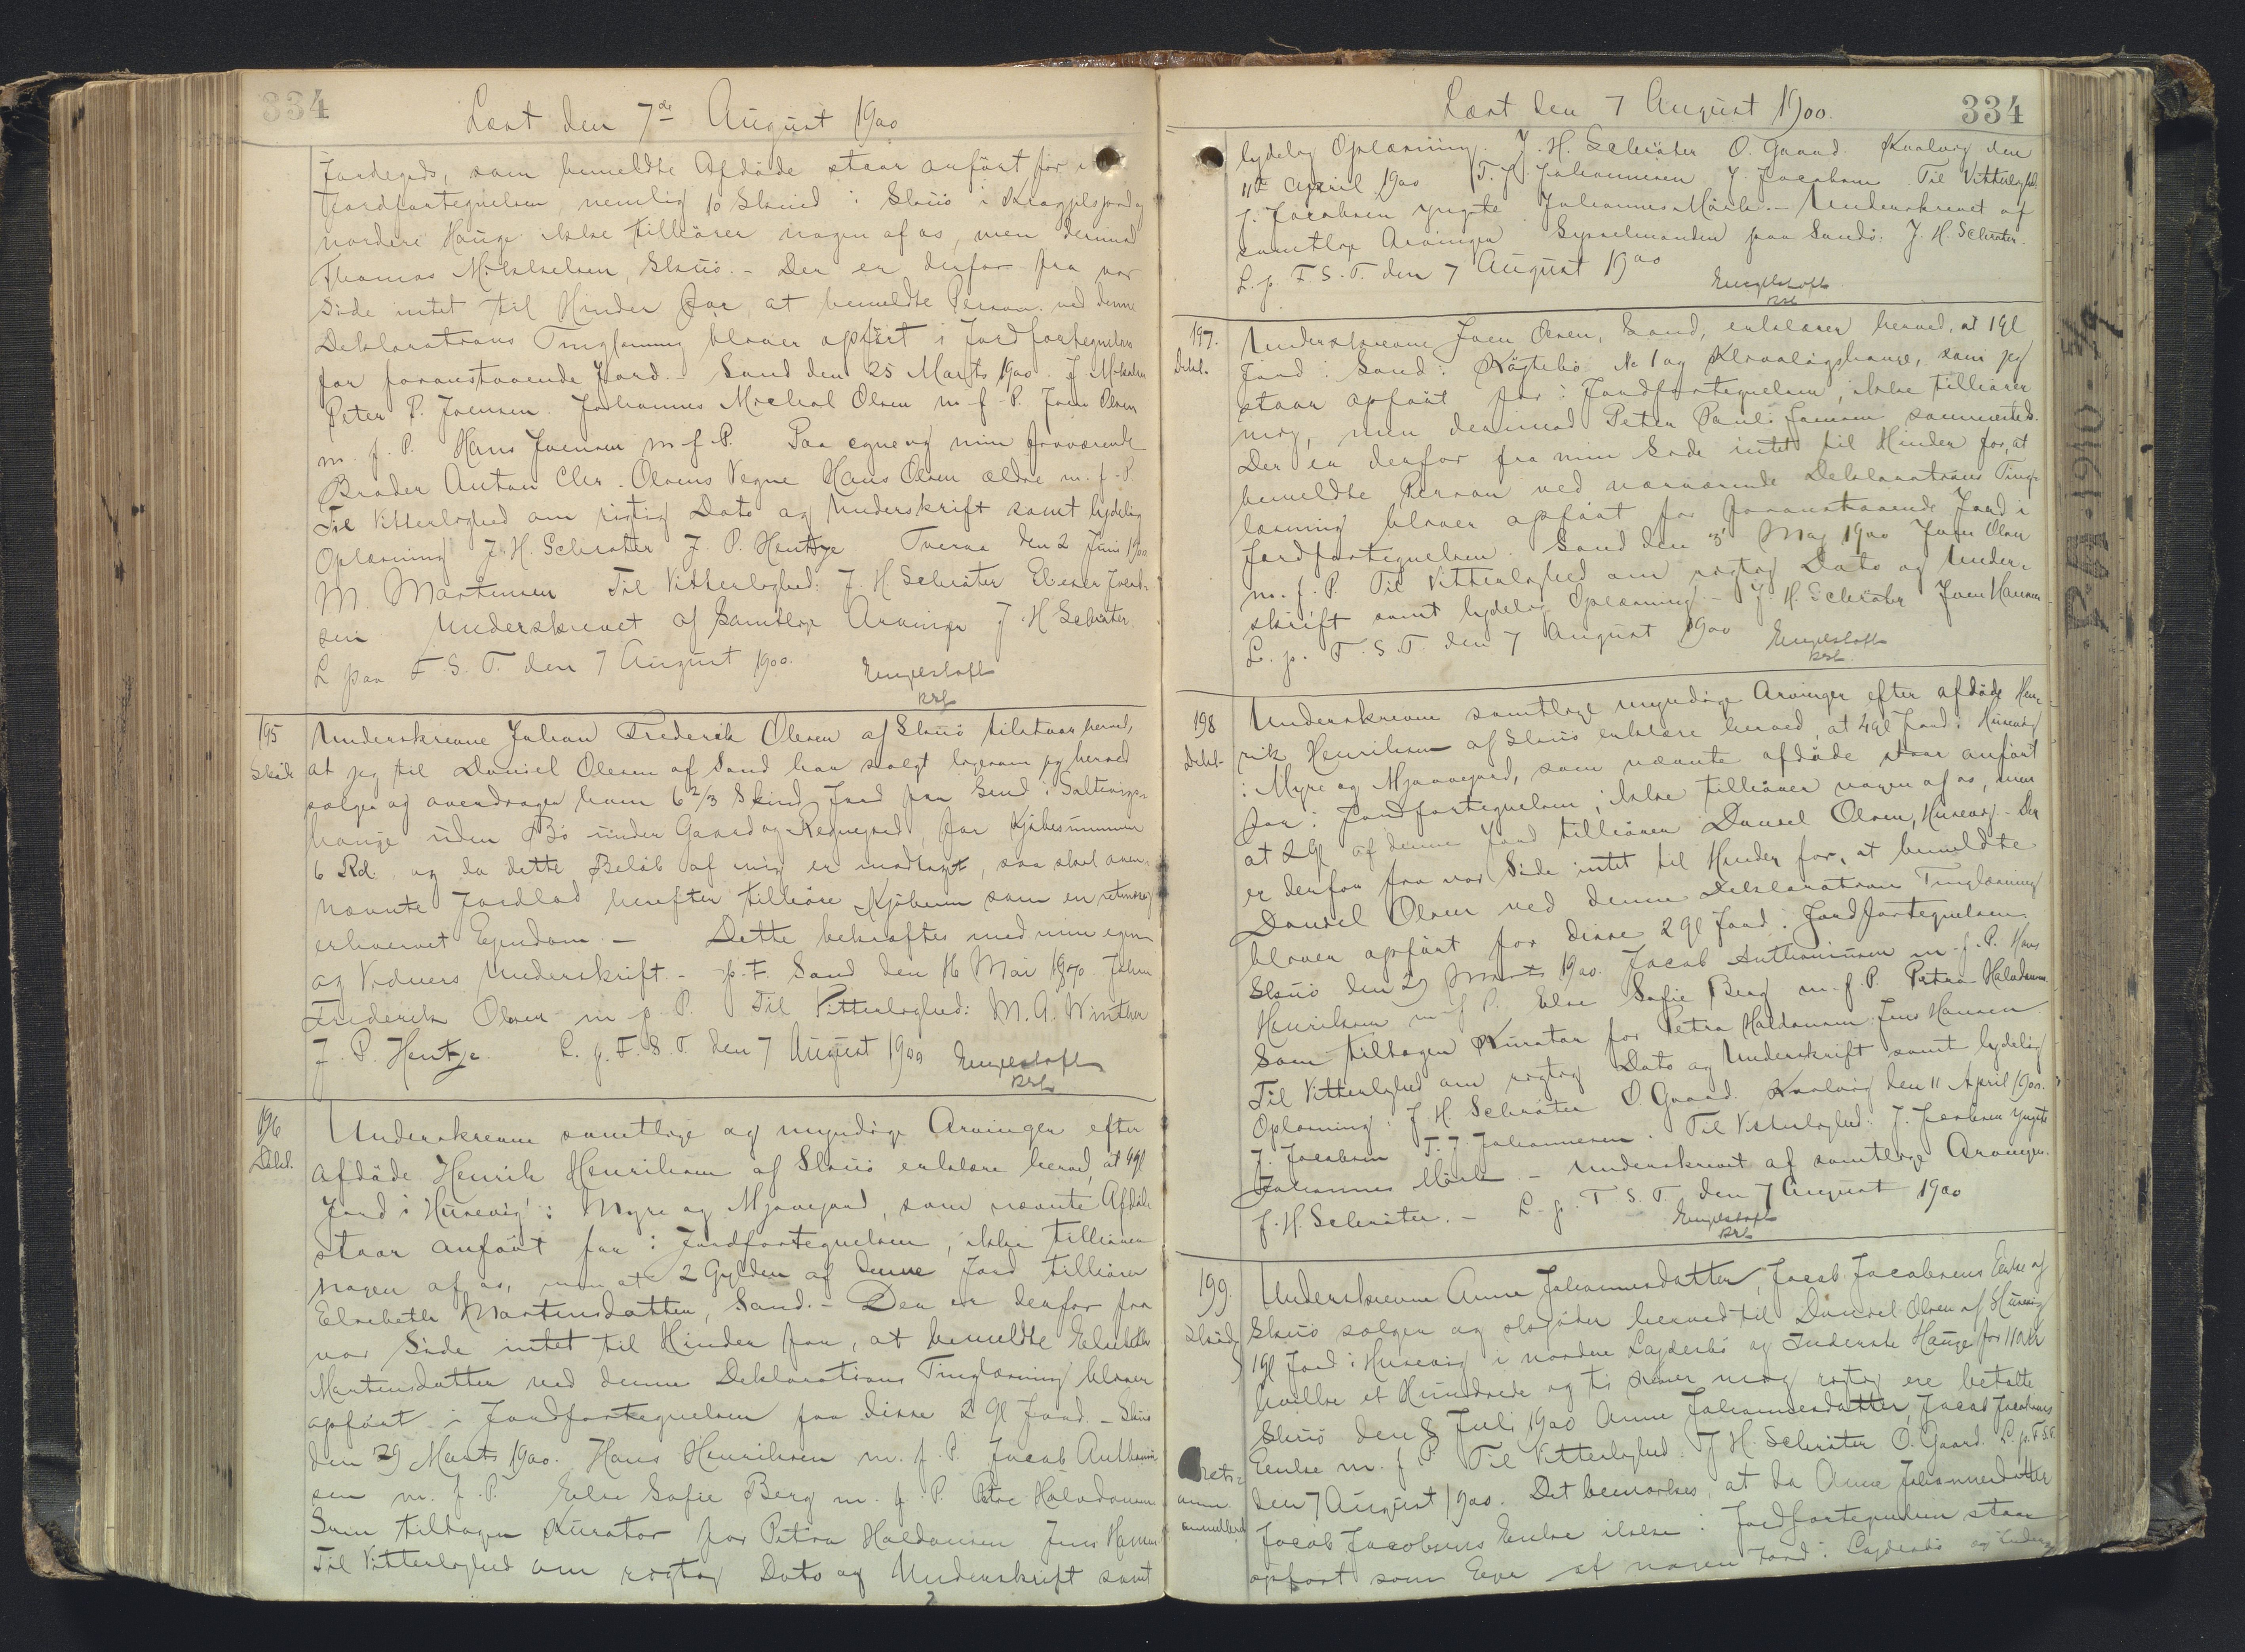 334
Læst den 7de August 1900
Jordegods, som bemeldte Afdöde staar anfört for i
Jordfortegnelsen, nemlig 10 Skind i Skuö i
nordere Hauge ikke tilhörer nogen af os, men derimod
Thomas Mikkelsen, Skuö. - Der er derfor fra vor
Side intet til Hinder for, at bemeldte Person ved denne
Deklarations Tinglæsning bliver opfört i Jordfortegnelsen
for foranstaaende Jord. - Sand den 25 Marts 1900. J.
Peter P. Joensen. Johannes Michal Olsen m. f. P. Joen Olsen
m. f. P. Hans Joensen m. f. P. Paa egne og min fraværende
Broder Anton Chr. Olsens Vegne Hans Olsen ældre m. f. P.
Til Vitterlighed om rigtig Dato og Underskrift samt lydelig
Oplæsning J. H. Schröter J. P. Hentze Tveraa den 2 Juni 1900
M. Mortensen Til Vitterlighed: J. H. Schröter Ebenezer Joen-
sen Underskrevet af samtlige Arvinge J. H. Schröter.
L. paa F. S. T. den 7 August 1900.
Engelstoft
195
Sköde
Underskrevne Johan Frederik Olesen af Skuö tilstaar herved,
at jeg til Daniel Olesen af Sand har solgt ligesom jeg herved
sælger og overdrager ham 6 2/3 Skind Jord paa Sand i Saltvigs-
hauge uden Bö under Gaard og Regnegard, for Kjöbesummen
6 Rd. og da dette Belöb af mig er modtaget, saa skal oven-
nævnte Jordlod herefter tilhöre Kjöberen som en retmæssig
erhvervet Ejendom. - Dette bekræftes med min egen
og Vidners Underskrift. - p. t. Sand den 16 Mai 1870. Johan
Frederik Olesen m. f. P. Til Vitterlighed: M. A. Winther
J. P. Hentze. L. p. F. S. T. den 7 August 1900
Engelstoft
196
Dekl.
Underskrevne samtlige og myndige Arvinger efter
afdöde Henrik Henriksen af Skuö erklære herved, at 4 Gl
Jord i Husevig i Myre og Mjavegard, som nævnte Afdöde
staar anfört for i Jordfortegnelsen, ikke tilhörer
nogen af os, men at 2 Gylden af denne Jord tilhörer
Elsebeth Mortensdatter, Sand. - Der er derfor fra
vor Side intet til Hinder for, at bemeldte Elsebeth
Mortensdatter ved denne Deklarations Tinglæsning bliver
opfört i Jordfortegnelsen for disse 2 Gl Jord. - Skuö
den 29 Marts 1900. Hans Henriksen m. f. P. Jacob Anthoniu-
sen m. f. P. Else Sofie Berg m. f. P. Petra Haldansen
Som tiltagen Kurator for Petra Haldansen Jens Hansen
Til Vitterlighed om rigtig Dato og Underskrift samt
334
Læst den 7 August 1900.
lydelig Oplæsning. J. H. Schröter O. Gaard. Kvalvig den
11te April 1900 T. J. Johannesen J. Jacobsen Til Vitterlighed.
J. Jacobsen yngste Johannes Mörk. - Underskrevet af
samtlige Arvinger Sysselmanden paa Sandö: J. H. Schröter.
L. p. F. S. T. den 7 August 1900
Engelstoft
197.
Dekl.
Underskrevne Joen Olsen, Sand, erklærer herved, at 1 Gl
Jord i Sand i No 1 og som jeg
staar opfört for i Jordfortegnelsen, ikke tilhörer
mig, men derimod Peter Pauli Jensen sammesteds.
Der er derfor fra min Side intet til Hinder for, at
bemeldte Person ved nærværende Deklarations Ting-
læsning bliver opfört for foranstaaende Jord i
Jordfortegnelsen. Sand den 3 Maj 1900 Joen Olsen
m. f. P. Til Vitterlighed om rigtig Dato og Under-
skrift samt lydelig Oplæsning - J. H. Schröter Joen Hansen
L. p. F. S. T. den 7 August 1900
Engelstoft
198
Dekl.
Underskrevne samtlige myndige Arvinger efter afdöde Hen-
rik Henriksen af Skuö erklære herved, at 4 Gl Jord i Husevig
i Myre og Mjavegard, som nævnte afdöde staar anfört
for i Jordfortegnelsen, ikke tilhörer nogen af os, men
at 2 Gl af denne Jord tilhörer Daniel Olsen, Husevig. - Der
er derfor fra vor Side intet til Hinder for, at bemeldte
Daniel Olsen ved denne Deklarations Tinglæsning
bliver opfört for disse 2 Gl Jord i Jordfortegnelsen.
Skuö den 29 Marts 1900. Jacob Anthoniusen m. f. P. Hans
Henriksen m. f. P. Else Sofie Berg m. f. P. Petra Haldansen.
Som tiltagen Kurator for Petra Haldansen Jens Hansen
Til Vitterlighed om rigtig Dato og Underskrift samt lydelig
Oplæsning: J. H. Schröter O. Gaard. Kvalvig den 11 April 1900.
J. Jacobsen T. J. Johannesen. Til Vitterlighed: J. Jacobsen yngste
Johannes Mörk - Underskrevet af samtlige Arvinger.
J. H. Schröter. - L. p. F. S. T. den 7 August 1900
Engelstoft
199.
Sköde
Underskrevne Anne Johannesdatter, Jacob Jacobsens Enke af
Skuö sælger og skjöder herved til Daniel Olsen af Husevig
1 Gl Jord i Husevig i nordere Lagdesbö og Inderste Hauge for 110 Kr
hvilke et Hundrede og ti Kroner mig rigtig ere betalte
Skuö den 8 Juli 1900 Anne Johannesdatter, Jacob Jacobsens
Enke m. f. P. Til Vitterlighed: J. H. Schröter O. Gaard. L. p. F. S. T.
den 7 August 1900. Det bemærkes, at da Anne Johannesdatter
Jacob Jacobsens Enke ikke i Jordfortegnelsen staar
opfört som Ejer af nogen Jord i Lagdesbö og
Rets-
anm.
annulleret